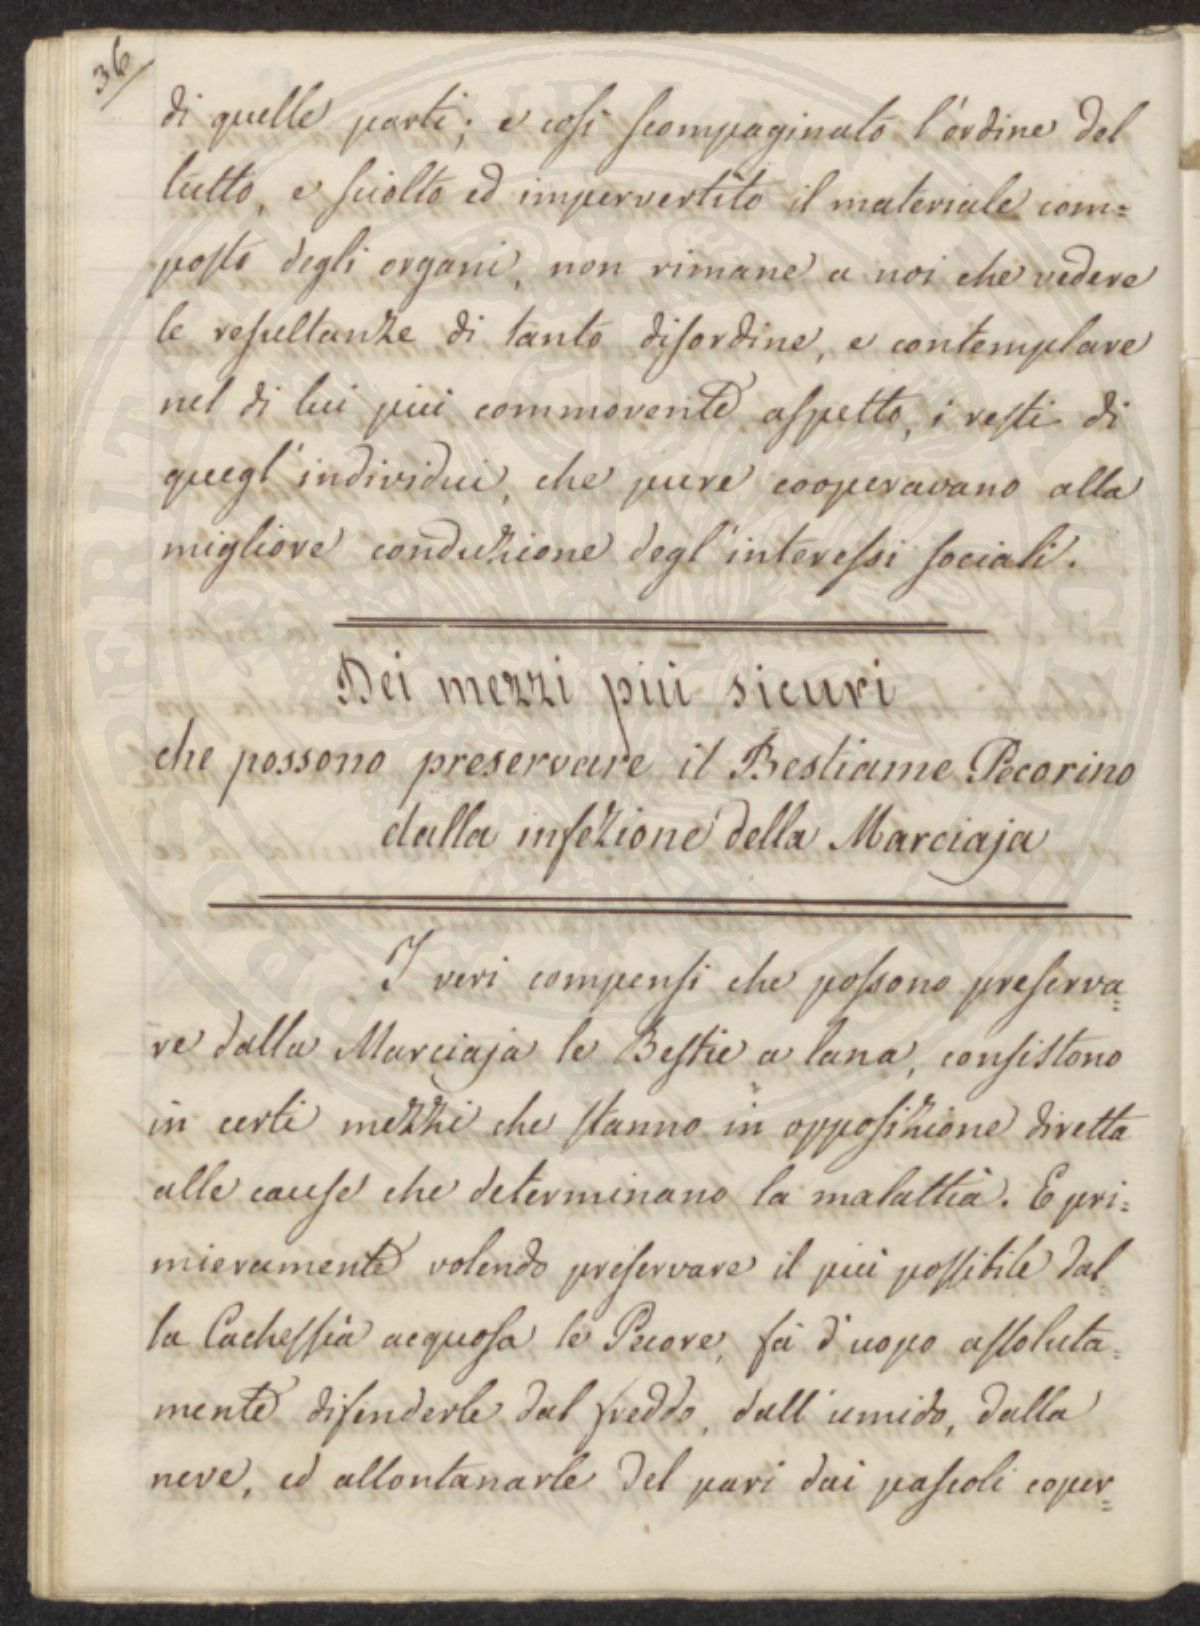 36
di quelle parti; e così scompaginato l'ordine del
tutto, e sciolto ed impervertito il materiale com=
posto degli organi, non rimane a noi che vedere
le resultanze di tanto disordine, e contemplare
nel di lui più commovente aspetto, i resti di
quegl'individui, che pure cooperavano alla
migliore conduzione degl'interessi sociali.
Dei mezzi più sicuri
che possono preservare il Bestiame Pecorino
dalla infezione della Marciaja
I veri compensi che possono preserva=
re dalla Marciaja le Bestie a lana, consistono
in certi mezzi che stanno in opposizione diretta
alle cause che determinano la malattia. E pri=
mieramente volendo preservare il più possibile dal
la Cachessia acquosa le Pecore, fà d'uopo assoluta=
mente difenderle dal freddo, dall'umido, dalla
neve, ed allontanarle del pari dai pascoli coper=